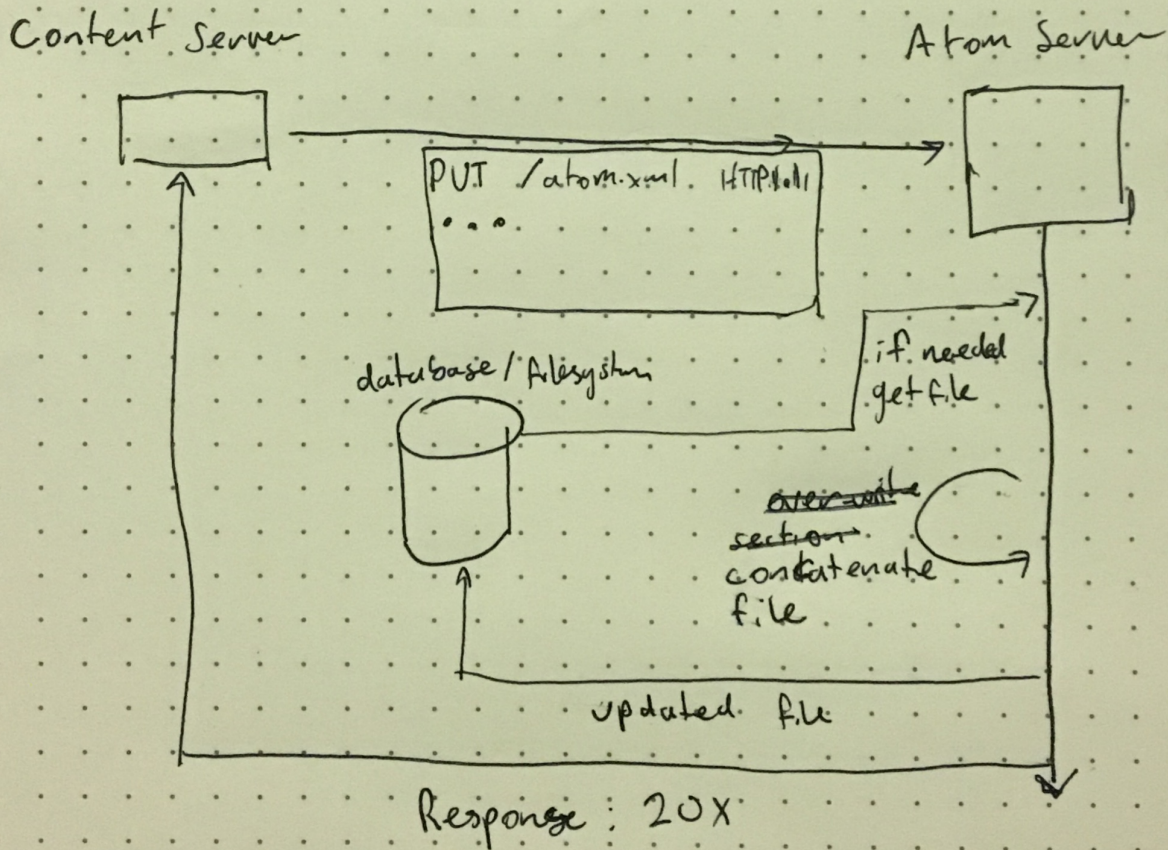 Content Server
Atom Server
PUT /atom.xml HTTP/1.1
...
database/filesystem
if needed
get file
over-write
section
concatenate
file
updated file
Response: 20X